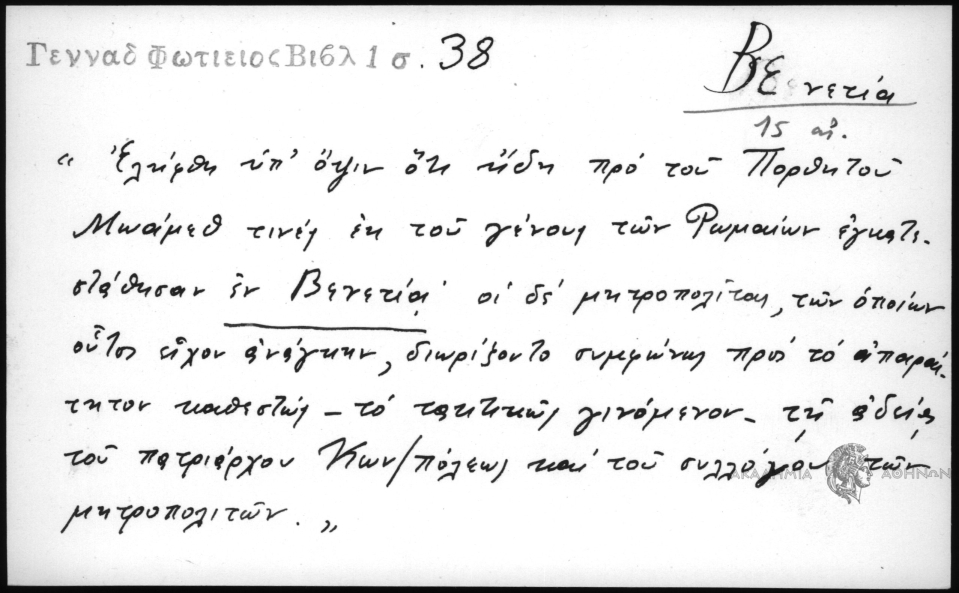 Γενναδ Φωτιειος Βιβλ 1 σ. 38
Βενετία
15 αἰ.
“ Ἐλήφθη ὑπ’ ὄψιν ὅτι ἤδη πρό τοῦ Πορθητοῦ
Μωάμεθ τινές ἐκ τοῦ γένους τῶν Ρωμαίων ἐγκατε-
στάθησαν ἐν Βενετίᾳ· οἱ δέ μητροπολῖται, τῶν ὁποίων
οὗτοι εἶχον ἀνάγκην, διωρίζοντο συμφώνως πρός τό ἀπαραί-
τητον καθεστώς – τό τακτικῶς γινόμενον – τῇ ἀδείᾳ
τοῦ πατριάρχου Κων/πόλεως καί τοῦ συλλόγου τῶν
μητροπολιτῶν. „
ΑΚΑΔΗΜΙΑ ΑΘΗΝΩΝ